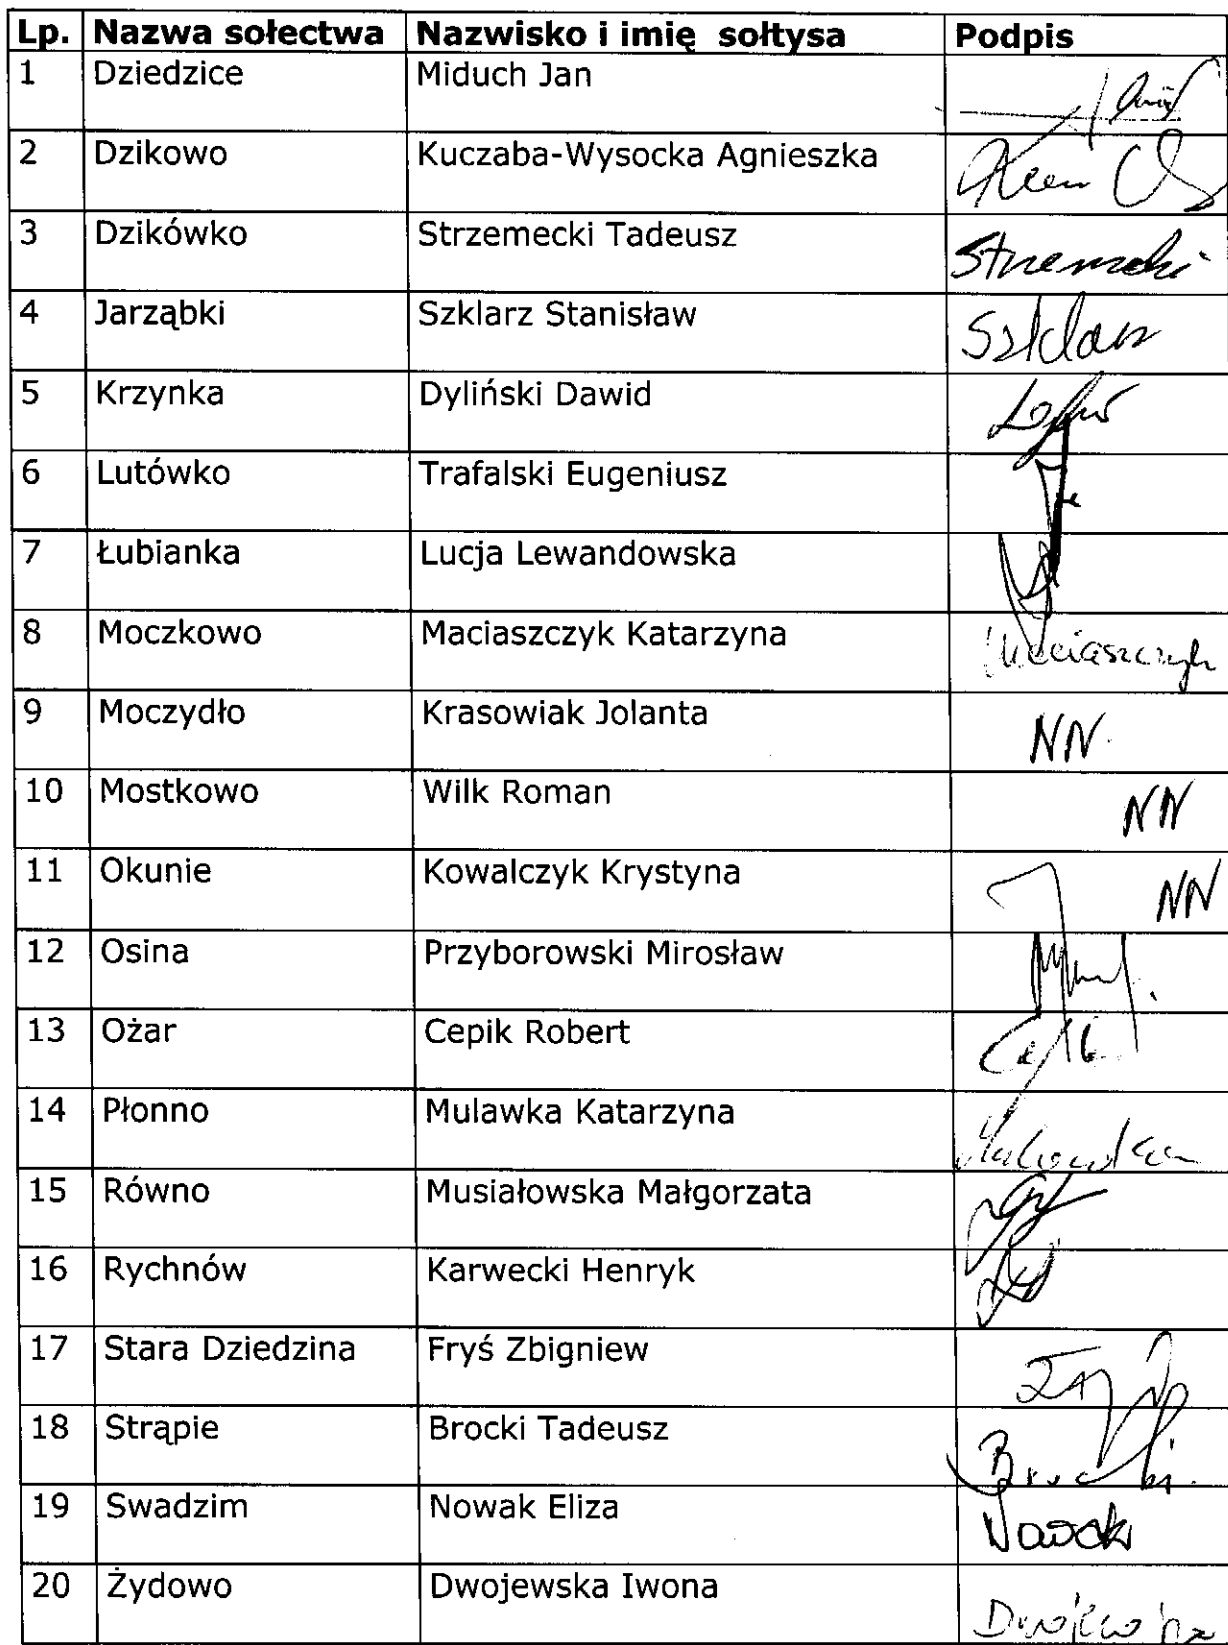 Lp. Nazwa sołectwa Nazwisko i imię sołtysa Podpis
1 Dziedzice Miduch Jan
2 Dzikowo Kuczaba-Wysocka Agnieszka
3 Dzikówko Strzemecki Tadeusz
4 Jarząbki Szklarz Stanisław Szklarz
5 Krzynka Dyliński Dawid
6 Lutówko Trafalski Eugeniusz
7 Łubianka Lucja Lewandowska
8 Moczkowo Maciaszczyk Katarzyna Maciaszczyk
9 Moczydło Krasowiak Jolanta NN.
10 Mostkowo Wilk Roman NN
11 Okunie Kowalczyk Krystyna NN
12 Osina Przyborowski Mirosław
13 Ożar Cepik Robert
14 Płonno Mulawka Katarzyna
15 Równo Musiałowska Małgorzata
16 Rychnów Karwecki Henryk
17 Stara Dziedzina Fryś Zbigniew
18 Strąpie Brocki Tadeusz Brocki
19 Swadzim Nowak Eliza Nowak
20 Żydowo Dwojewska Iwona